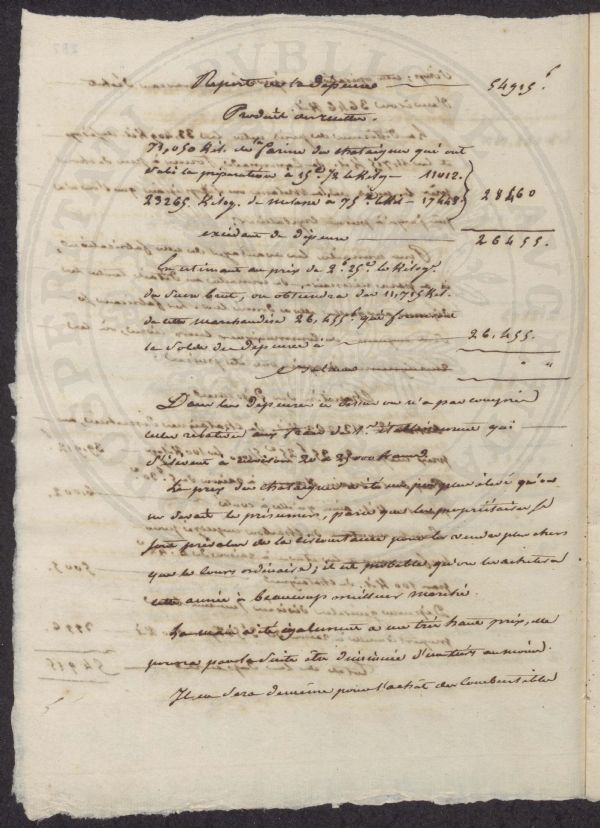 Report de la dépense 54915 f
Produit en recette.
73,050 Kil. de farine de chataignes qui ont
subi la préparation à 15 c ½ le Kilog. 11012.
23265 Kilog. de melasse à 75 c le Kil. 17448
28460
excédant de dépense 26455.
En estimant au prix de 2 f 25 c le Kilog.
du Sucre brut, on obtiendra des 11,715 Kil.
de cette marchandise 26,455 f qui formeront
le Solde de dépense à 26,455.
Balance " "
Dans les dépenses ci dessus on n'a pas compris
celles relatives aux frais d'établissement qui
s'élèvent à environ 20 à 25000 francs.
Le prix des chataignes a été un peu plus élevé qu'on
ne devait le présumer, parce que les propriétaires se
sont prévalus de la circonstance pour les vendre plus chers
que le cours ordinaire; il est probable qu'on les achetera
cette année à beaucoup meilleur marché.
a été également à un très haut prix, elle
pourra par la suite être diminuée d'un tiers au moins.
Il en sera de même pour l'achat des combustibles